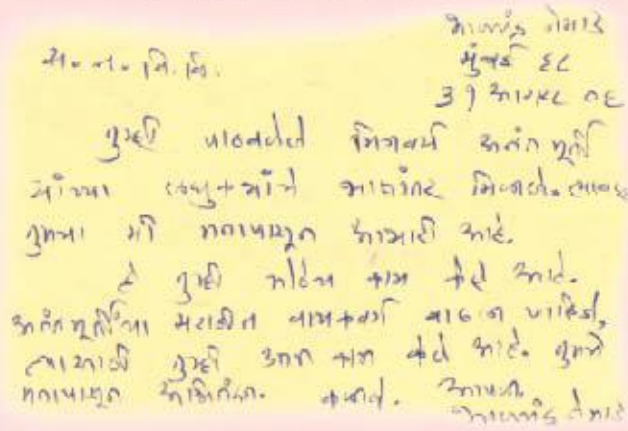 भालचंद्र नेमाडे
मुंबई ६८
३१ ०६
स. न. वि. वि.
तुम्ही पाठवलेले मित्रवर्य अनंतमूर्ती
यांच्या भाषांतर मिळाले.
तुमचा मी मनापासून आभारी आहे.
हे तुम्ही मोठेच काम केले आहे.
अनंतमूर्तींचा मराठीत वाचकवर्ग वाढला पाहिजे,
त्यासाठी तुम्ही उत्तम काम केले आहे. तुमचे
मनापासून अभिनंदन. कळावे. आपला
भालचंद्र नेमाडे